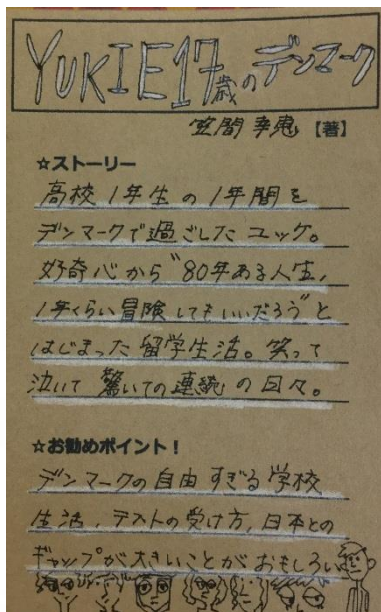 YUKIE17歳のデンマーク
笠間 幸恵【著】
☆ストーリー
高校1年生の1年間を
デンマークで過ごしたユッケ。
好奇心から"80年ある人生,
1年くらい冒険してもいいだろう"と
はじまった留学生活。笑って
泣いて驚いての連続の日々。
☆お勧めポイント！
デンマークの自由すぎる学校
生活,テストの受け方,日本との
ギャップが大きいことがおもしろい。